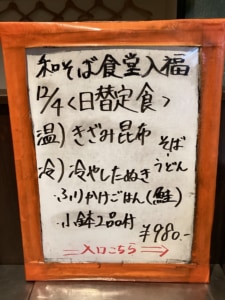 和そば食堂入福
12/4〈日替定食〉
温)きざみ昆布 そば
冷)冷やしたぬき うどん
・ふりかけごはん(鮭)
・小鉢2品付
¥980.-
入口こちら→